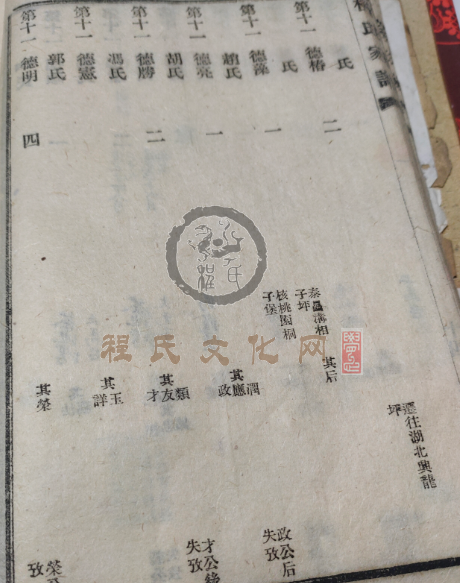 氏家譜
遷往湖北興龍
坪
氏
第十一 德椿 二 其后
氏
泰昌溝相
子坪
核桃園桐
子堡
第十一 德藻 一
潤
其應
政
政公后
失攷
趙氏
第十一 德亮 一
胡氏
第十一 德勝 二
類
其友
才
才公後
失攷
馮氏
第十一 德憲
玉
其
詳
郭氏
第十一 德明 四 其榮
攷
程氏文化网